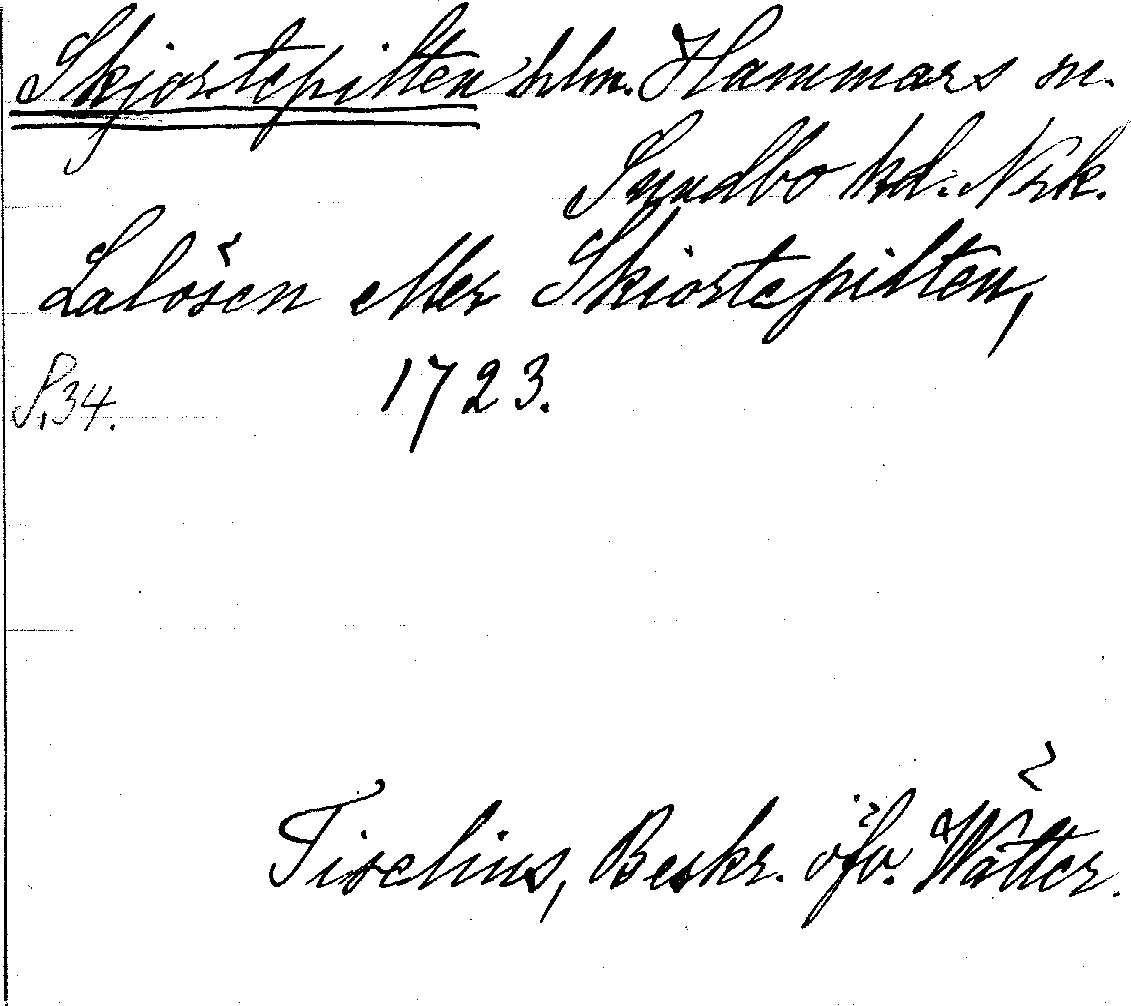 Skjortepilten hlm. Hammars sn.
Sundbo hd. Nrk.
Lalösen eller Skiortepilten,
S. 34. 1723.
Tiselius, Beskr. öfv. Wätter.